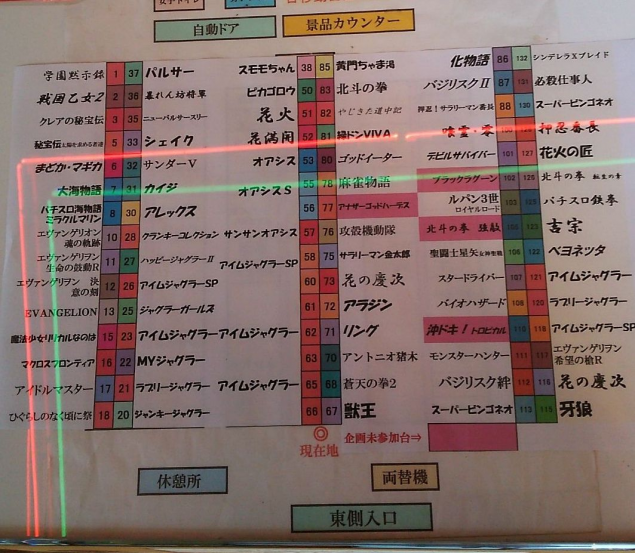 自動ドア
景品カウンター
学園黙示録 1 37 パルサー
戦国乙女2 2 36 暴れん坊将軍
クレアの秘宝伝 3 35 ニューパルサー
秘宝伝 5 33 シェイク
まどか・マギカ 6 32 サンダーV
大海物語 7 31 カイジ
パチスロ海物語 ミラクルマリン 8 30 アレックス
エヴァンゲリオン 魂の軌跡 10 28 クランキーコレクション
エヴァンゲリヲン 生命の鼓動R 11 27 ハッピージャグラーⅡ
エヴァンゲリヲン 決意の刻 12 26 アイムジャグラーSP
EVANGELION 13 25 ジャグラーガールズ
魔法少女リリカルなのは 15 23 アイムジャグラー
マクロスフロンティア 16 22 MYジャグラー
アイドルマスター 17 21 ラブリージャグラー
ひぐらしのなく頃に祭 18 20 ジャンキージャグラー
スモモちゃん 38 85 黄門ちゃま
ピカゴロウ 50 83 北斗の拳
花火 51 82 やじきた道中記
花満開 52 81 緑ドンVIVA
オアシス 53 80 ゴッドイーター
オアシスS 55 78 麻雀物語
56 77 アナザーゴッドハーデス
サンサンオアシス 57 76 攻殻機動隊
アイムジャグラーSP 58 75 サラリーマン金太郎
60 73 花の慶次
61 72 アラジン
アイムジャグラー 62 71 リング
63 70 アントニオ猪木
アイムジャグラー 65 68 蒼天の拳2
66 67 獣王
化物語 86 132 シンデレラブレイド
バジリスクⅡ 87 131 必殺仕事人
押忍!サラリーマン番長 88 130 スーパービンゴネオ
喰霊-零 押忍番長
デビルサバイバー 101 127 花火の匠
ブラックラグーン 102 126 北斗の拳 転生の章
ルパン3世 ロイヤルロード 103 125 パチスロ鉄拳
北斗の拳 強敵 123 吉宗
聖闘士星矢 女神聖戦 106 122 ベヨネッタ
スタードライバー 107 121 アイムジャグラー
バイオハザード 108 120 ラブリージャグラー
沖ドキ!トロピカル 110 118 アイムジャグラーSP
モンスターハンター 111 117 エヴァンゲリヲン 希望の槍R
バジリスク絆 112 116 花の慶次
スーパービンゴネオ 113 115 牙狼
現在地
企画未参加台⇒
休憩所
両替機
東側入口